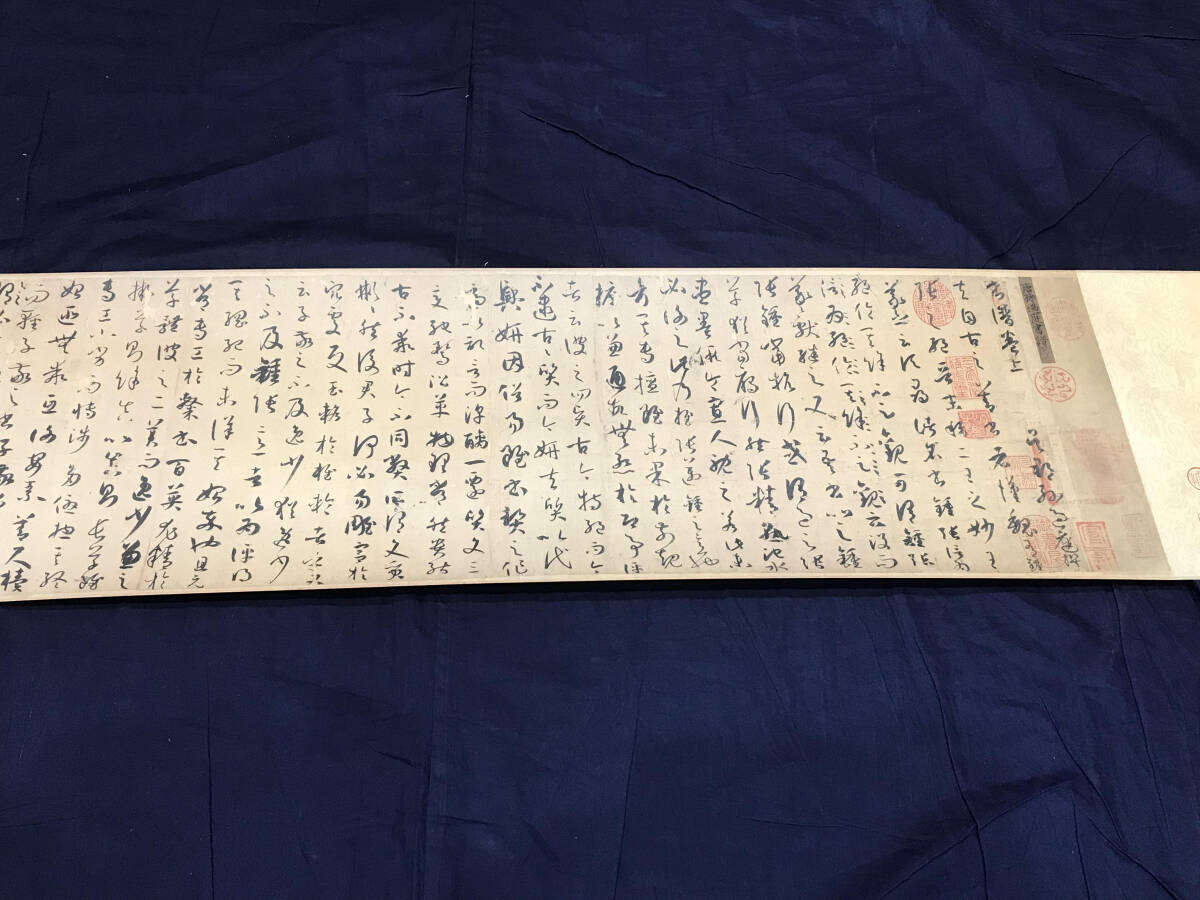 吳郡孫過庭撰
書譜卷上
夫自古之善書者漢魏有鍾
張之絕晉末稱二王之妙王
羲之云頃尋諸名書鍾張信為
絕倫其餘不足觀可謂鍾張云沒而
羲獻繼之又云吾書比之鍾
張鍾當抗行或謂過之張
草猶當鴈行然張精熟池水
盡墨假令寡人耽之若此未
必謝之此乃推張邁鍾之意也
考其專擅雖未果於前規
摭以兼通故無慚於即事評
者云彼之四賢古今特絕而今
不逮古古質而今妍夫質以代
興妍因俗易雖書契之作
適以記言而淳醨一遷質文三
變馳騖沿革物理常然貴能
古不乖時今不同弊所謂文質
彬彬然後君子何必易雕宮於
穴處反玉輅於椎輪者乎又
云子敬之不及逸少猶逸少
之不及鍾張意者以為評得
其綱紀而未詳其始卒也且元
常專工於隸書百英尤精於
草體彼之二美而逸少兼之
擬草則餘真比真則長草雖
專工小劣而博涉多優總其終
始匪無乖互謝安素善尺牘
而輕子敬之書子敬